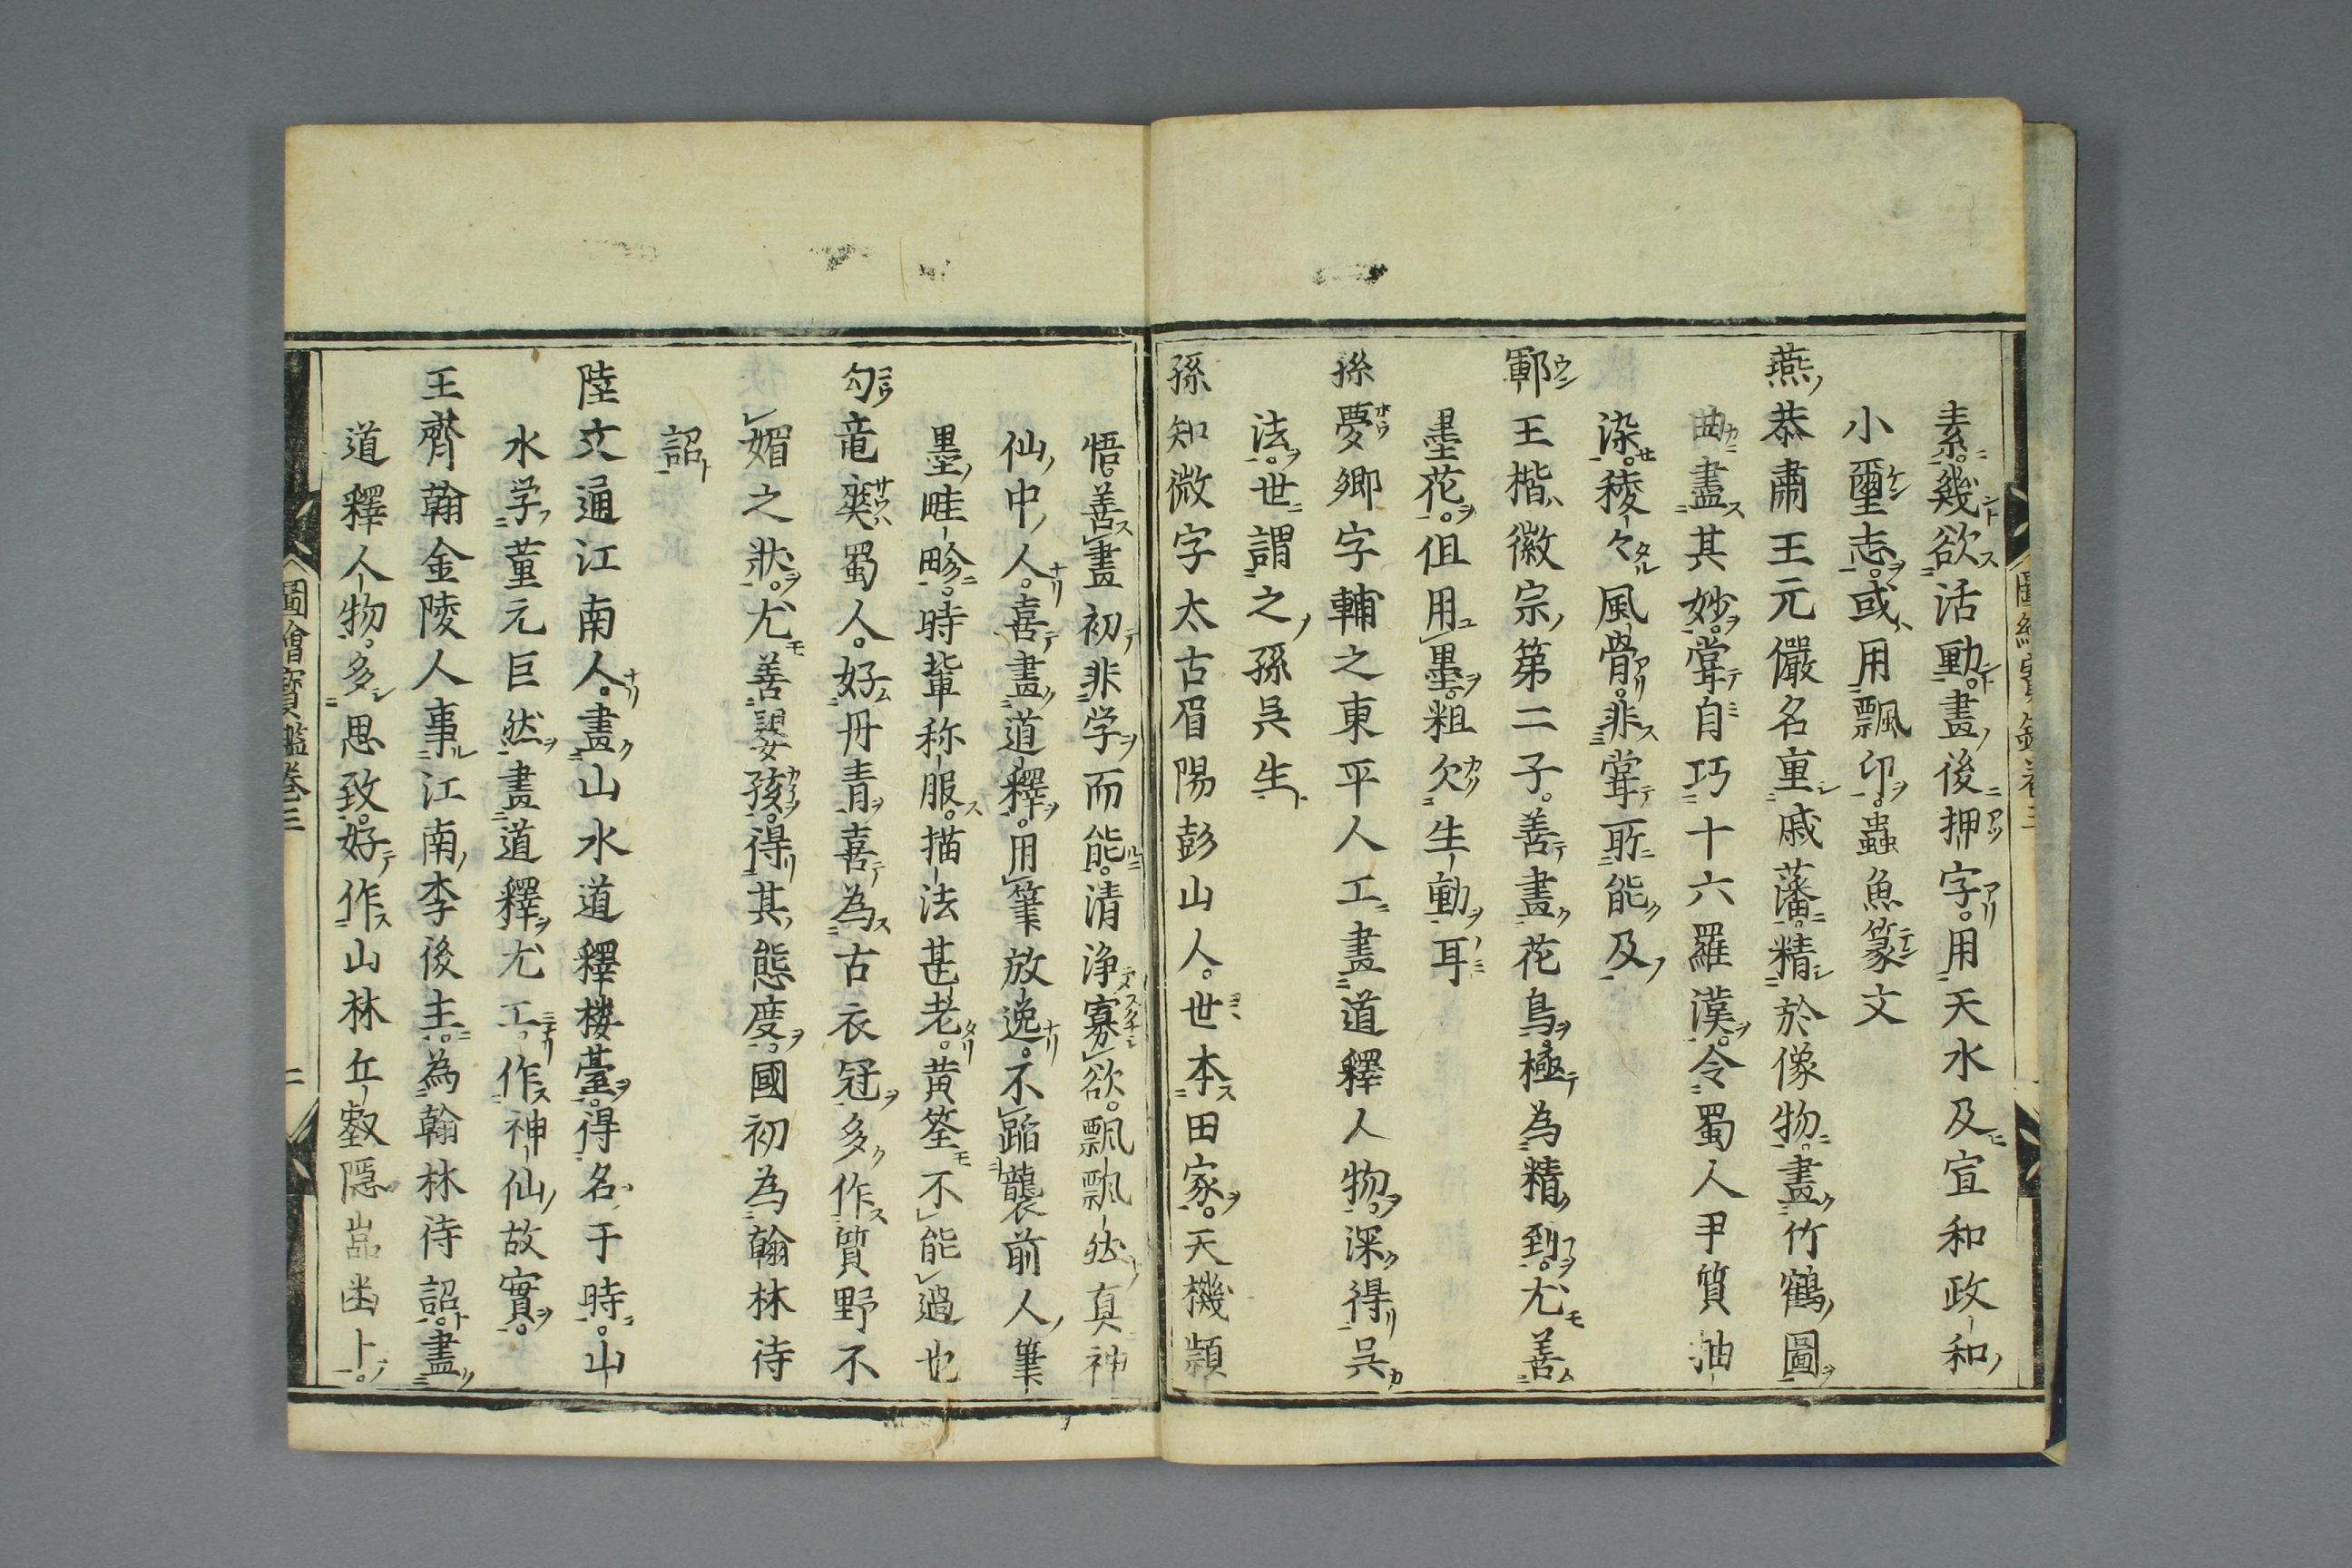 素幾欲活動畫後押字用天水及宣和政和
小璽志或用飄印蟲魚篆文
燕恭肅王元儼名重戚藩精於像物畫竹鶴圖
曲盡其妙甞自巧十六羅漢令蜀人尹質抽
染稜々風骨非甞所能及
鄆王楷徽宗第二子善畫花鳥極為精到尤善
墨花但用墨粗欠生動耳
孫夢卿字輔之東平人工畫道釋人物深得吳
法世謂之孫吳生
孫知微字太古眉陽彭山人世本田家天機頴
悟善畫初非学而能清浄寡欲飄飄然真神
仙中人喜畫道釋用筆放逸不蹈襲前人筆
墨畦畛時輩称服描法甚老黃筌不能過也
勾竜爽蜀人好丹青喜為古衣冠多作質野不
媚之狀尤善嬰孩得其態度國初為翰林待
詔
陸文通江南人畫山水道釋楼臺得名于時山
水学董元巨然畫道釋尤工作神仙故實
王齊翰金陵人事江南李後主為翰林待詔畫
道釋人物多思致好作山林丘壑隠嵓幽卜
圖繪寶鑑卷三
二